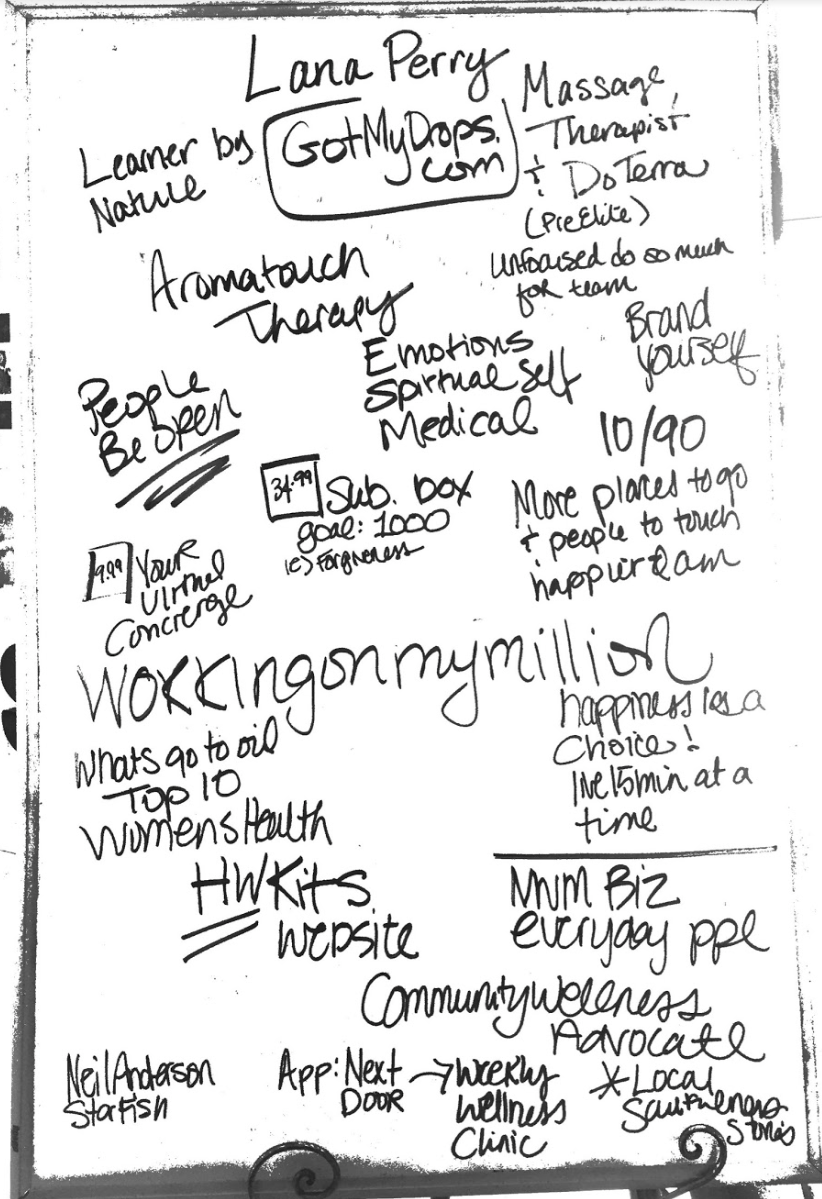 Lana Perry
Learner by
Nature
GotMyDrops.
com
Massage
Therapist
+ DoTerra
(PreElite)
Unfocused do so much
for team
Aromatouch
Therapy
Brand
yourself
Emotions
Spirtual Self
Medical
People
Be Open
10/90
More places to go
+ people to touch
happier
34.99
Sub. box
goal: 1000
ie) Forgiveness
9.99
Your
Virtual
Concierge
workingonmymillion
happiness is a
Choice!
live 15min at a
time
Whats go to oil
Top 10
Womens Health
HW Kits
website
MWM Biz
everyday ppl
Community Wellness
Advocate
Neil Anderson
Starfish
App: Next
Door
→ Weekly
Wellness
Clinic
* Local
Stories